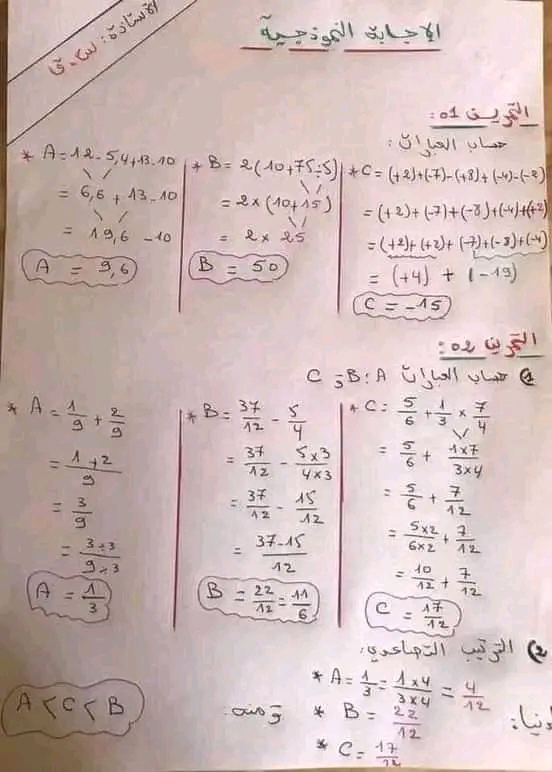 الأستاذة:
الإجابة النموذجية
التمرين 01:
حساب العبارات:
* A = 12 - 5,4 + 13 - 10
= 6,6 + 13 - 10
= 19,6 - 10
A = 9,6
* B = 2(10 + 75 ÷ 5)
= 2 × (10 + 15)
= 2 × 25
B = 50
* C = (+2) + (-7) - (+8) + (-4) - (-2)
= (+2) + (-7) + (-8) + (-4) + (+2)
= (+2) + (+2) + (-7) + (-8) + (-4)
= (+4) + (-19)
C = -15
التمرين 02:
1) حساب العبارات A ; B و C
* A = 1/9 + 2/9
= (1 + 2)/9
= 3/9
= (3 ÷ 3)/(9 ÷ 3)
A = 1/3
* B = 37/12 - 5/4
= 37/12 - (5 × 3)/(4 × 3)
= 37/12 - 15/12
= (37 - 15)/12
B = 22/12 = 11/6
* C = 5/6 + 1/3 × 7/4
= 5/6 + (1 × 7)/(3 × 4)
= 5/6 + 7/12
= (5 × 2)/(6 × 2) + 7/12
= 10/12 + 7/12
C = 17/12
2) الترتيب التصاعدي:
* A = 1/3 = (1 × 4)/(3 × 4) = 4/12
* B = 22/12
* C = 17/12
ومنه:
A < C < B